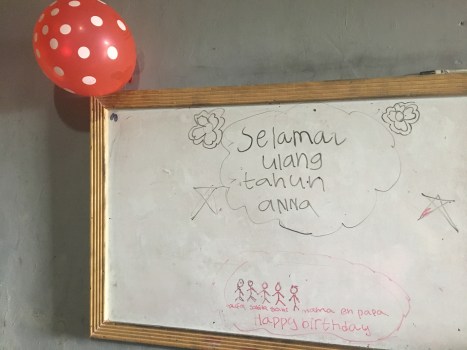 Selamat
ulang
tahun
ANNA
mama papa
Happy birthday